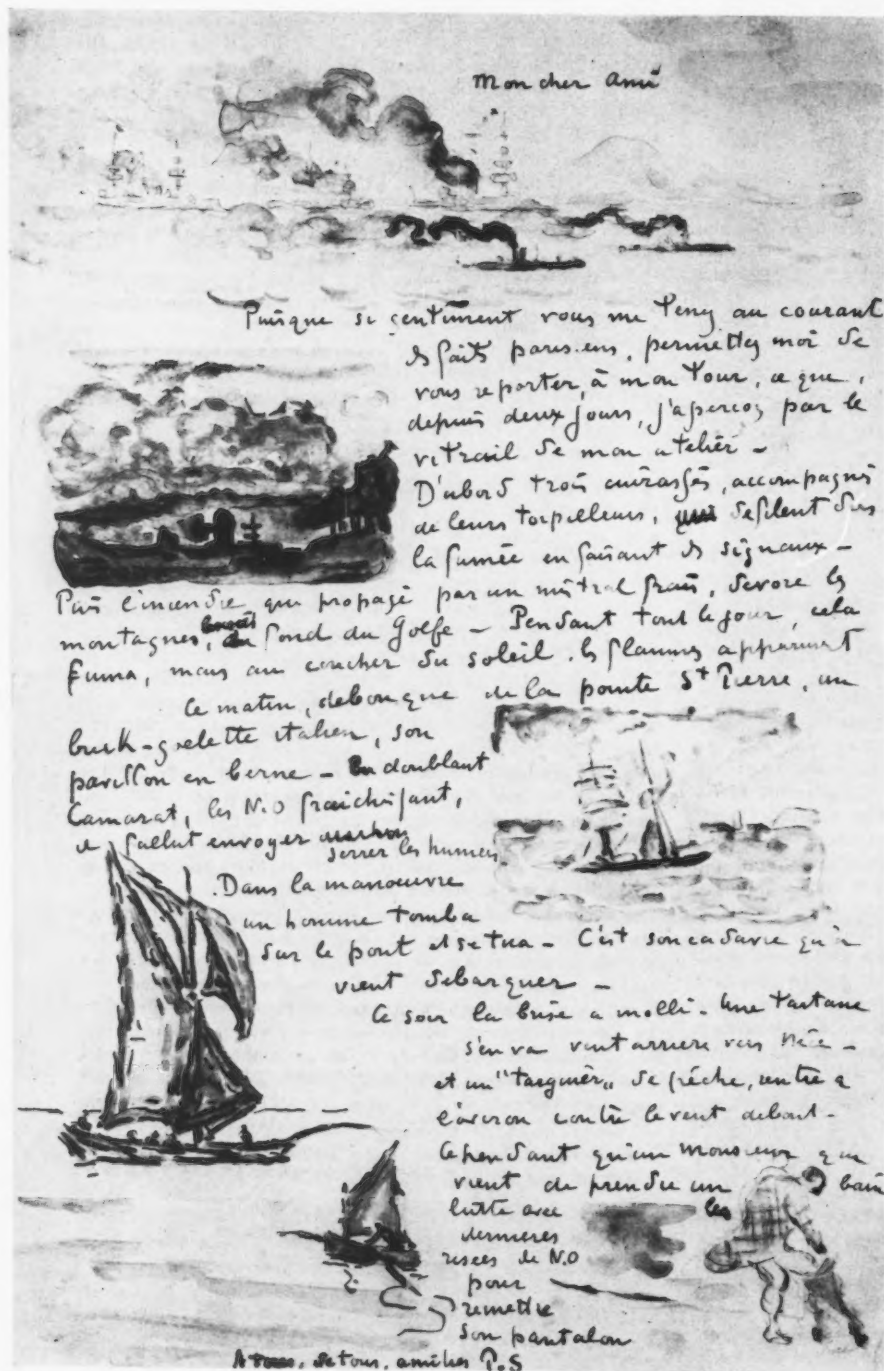 Mon cher Ami
Puisque si gentiment vous me tenez au courant
des faits parisiens, permettez moi de
vous reporter, à mon tour, ce que,
depuis deux jours, j'aperçois par le
vitrail de mon atelier –
D'abord trois cuirassés, accompagnés
de leurs torpilleurs, defilent dans
la fumée en faisant des signaux –
Puis l'incendie, qui propagé par un mistral frais, devore les
montagnes, fond du Golfe – Pendant tout le jour, cela
fuma, mais au coucher du soleil, les flammes apparurent
Ce matin, debouque de la pointe St Pierre, un
brick-goelette italien, son
pavillon en berne – En doublant
Camarat, les N.O fraichissant,
il fallut envoyer
serrer les huniers
Dans la manoeuvre
un homme tomba
sur le pont et se tua – C'est son cadavre qu'il
vient debarquer –
Ce soir la brise a molli – Une tartane
s'en va vent arriere vers Nice –
et un "tarquier" de pêche, rentre à
l'aviron contre le vent debout –
Cependant qu'un Monsieur qui
vient de prendre un bain
lutte avec les
dernieres
risées de N.O
pour
remettre
son pantalon
A tous, de tous, amitiés P.S